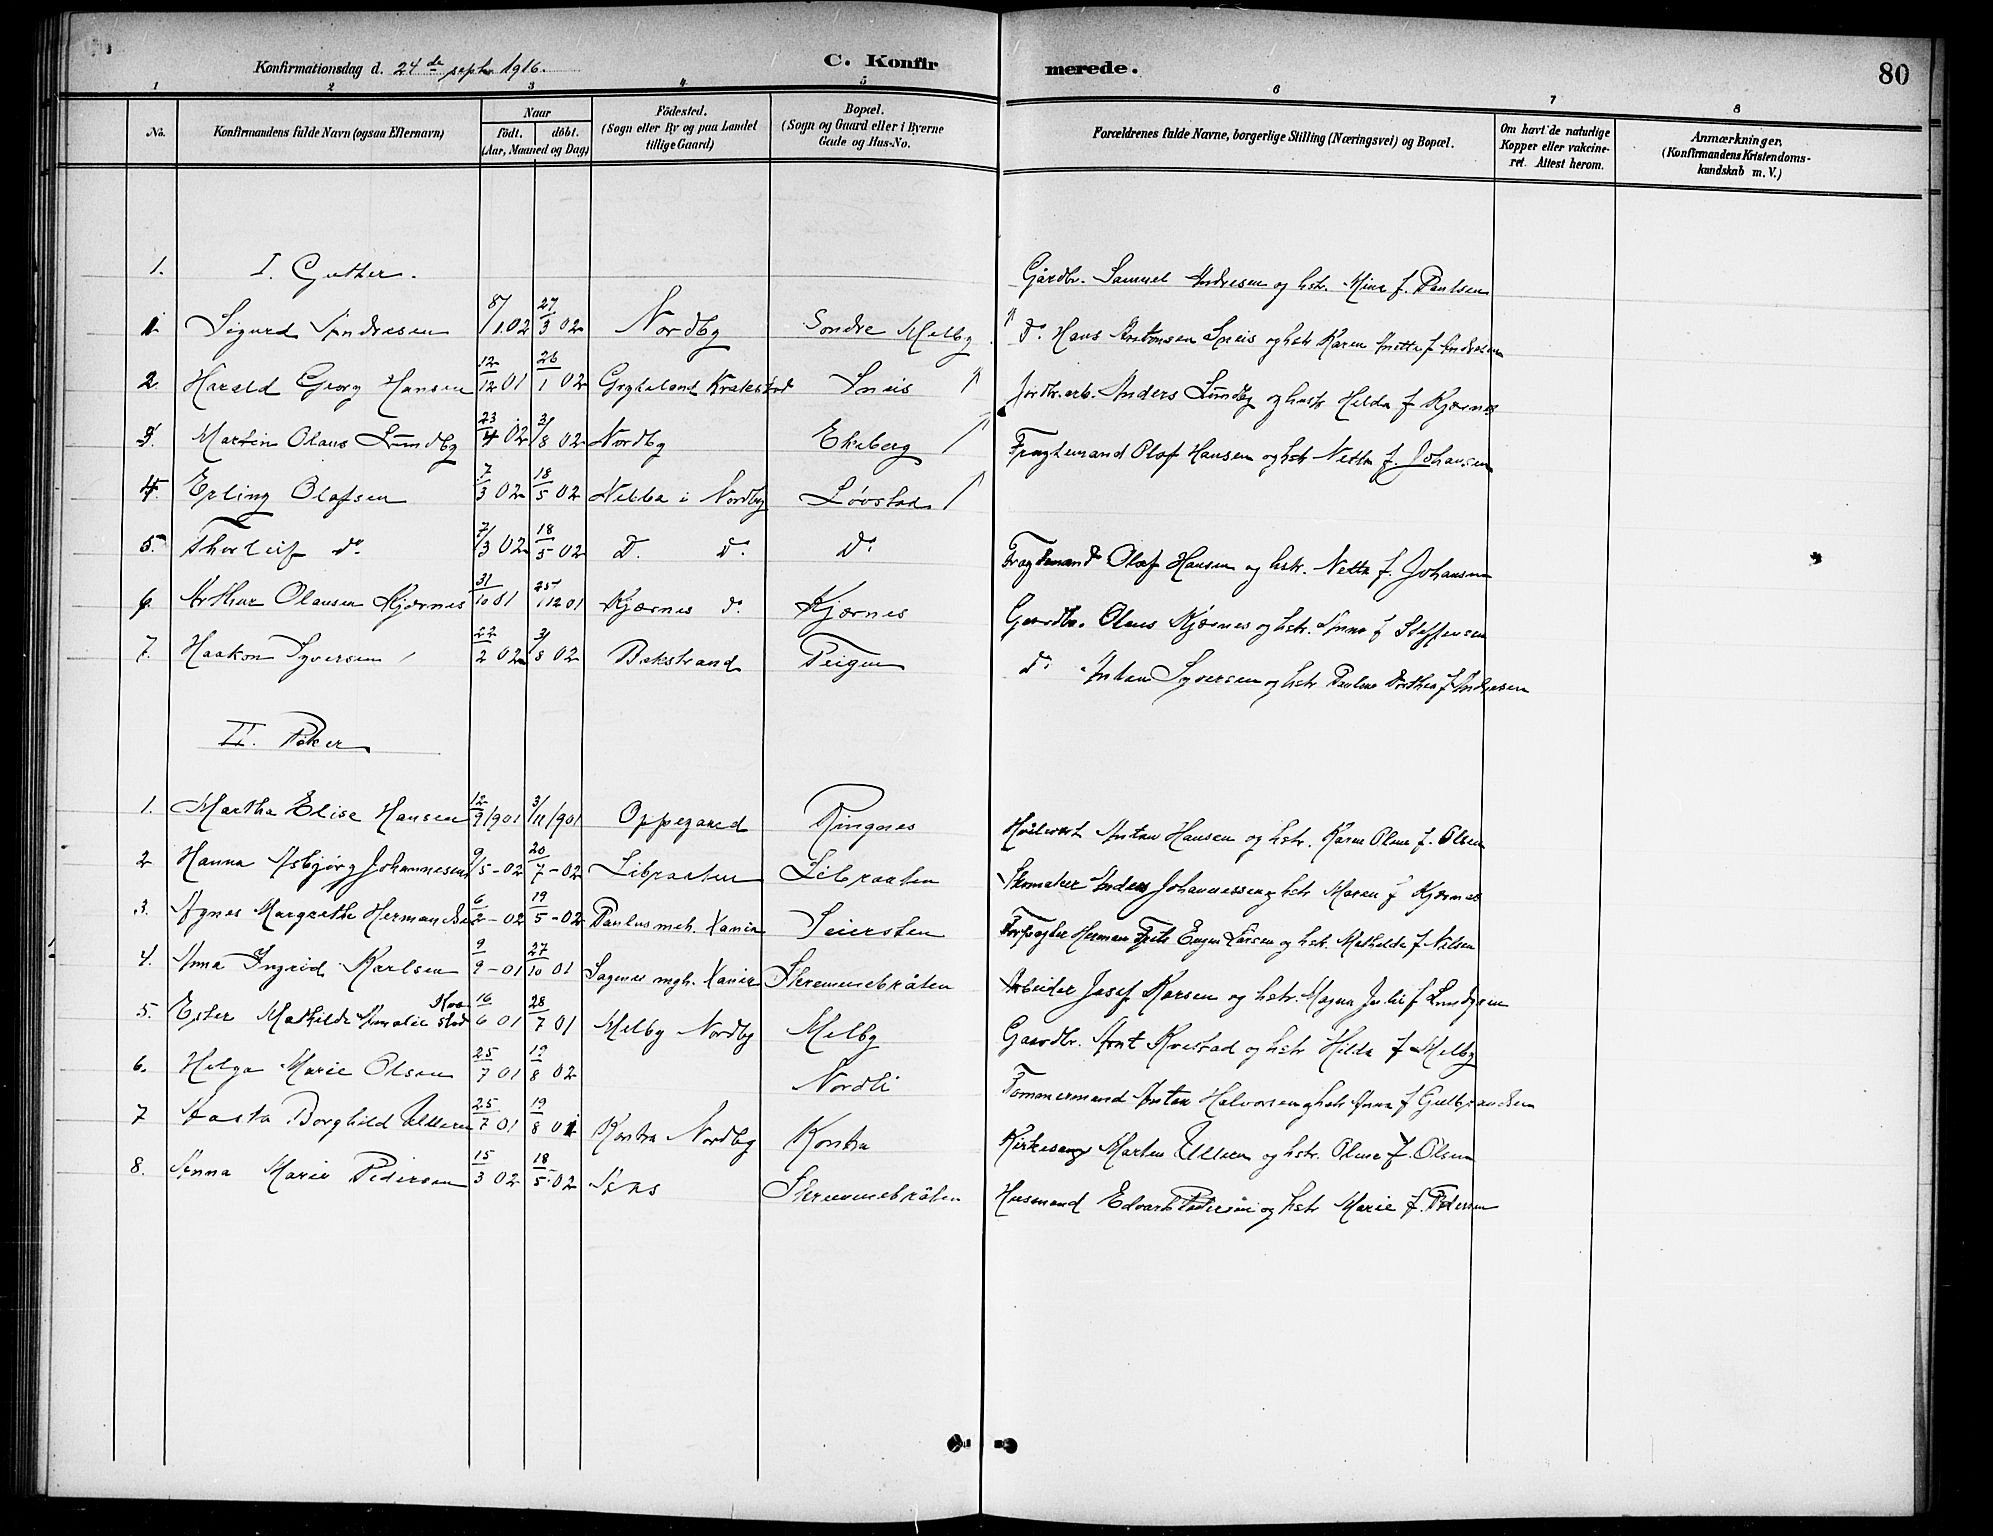 Konfirmationsdag d. 24de septbr 1916.
C. Konfirmerede.
80
1 2 3 4 5 6 7 8
No.
Konfirmandens fulde Navn (ogsaa Efternavn)
Naar
födt. döbt.
(Aar, Maaned og Dag)
Födested.
(Sogn eller By og paa Landet
tillige Gaard)
Bopæl.
(Sogn og Gaard eller i Byerne
Gade og Hus-No.
Forældrenes fulde Navne, borgerlige Stilling (Næringsvei) og Bopæl.
Om havt de naturlige
Kopper eller vakcine-
ret. Attest herom.
Anmærkninger.
(Konfirmandens Kristendoms-
kundskab m. V.)
1. I. Gutter.
1. Sigurd Andresen 8/1 02 27/3 02 Nordby Søndre Melby Gårdbr. Samuel Andresen og hstr. Mina f. Paulsen
2. Harald Georg Hansen 12/12 01 26/1 02 Gryteland Kraakstad Sneis do. Hans Antonsen Sneis og hstr Karen Anette f Andresen
3. Martin Olaus Lundby 23/4 02 3/8 02 Nordby Ekeberg Jordbr.arb. Anders Lundby og hustr Hilda f Kjærnes
4. Erling Olafsen 7/3 02 18/5 02 Nebba i Nordby Løvstad Fragtemand Olaf Hansen og hstr Netta f. Johansen
5. Thorleif do. 7/3 02 18/5 02 D. do. do. Fragtemand Olaf Hansen og hstr. Netta f. Johansen
6. Arthur Olausen Kjærnes 31/10 01 25/12 01 Kjærnes do. Kjærnes Gaardbr. Olaus Kjærnes og hstr. Anna f Steffensen
7. Haakon Syversen 22/2 02 3/8 02 Bekstrand Teigen do. Anton Syversen og hstr Pauline Dorthea f Andresen
II. Piker
1. Martha Elise Hansen 12/9 1901 3/11 1901 Oppegaard Ringnes Anton Hansen og hstr. Karen Oline f. Olsen
2 Hanna Asbjørg Johannesen 9/5-02 20/7-02 Libraaten Libraaten Skomaker Anders Johannessen og hstr Maren f Kjærnes
3. Agnes Margrethe Hermandsen 6/2-02 19/5-02 Paulus meh. Xania Seiersten Forpagter Herman Frits Eugen Larsen og hstr. Mathilde f Nilsen
4. Anna Ingrid Karlsen 9/9-01 27/10 01 Sagenes mgh. Xania Skremmebråten Arbeider Josef Karsen og hstr. Magna Julie f Lundgsen
5. Ester Mathilde Amalie Kvestad 16/6 01 28/7 01 Melby Nordby Melby Gaardbr. Arnt Kvestad og hstr Hilda f Melby
6. Helga Marie Olsen 25/7 01 19/8 02 Nordli Tømmermand Anton Halvorsen og hstr Anna f Gulbrandsen
7 Aasta Borghild Ulleren 25/7 01 19/8 01 Kontra Nordby Kontra Kirkesang. Martin Ulleren og hstr. Oline f. Olsen
8. Anna Marie Pedersen 15/3 02 18/5-02 Aas Skremmebråten Husmand Edvard Pedersen og hstr Marie f. Pedersen